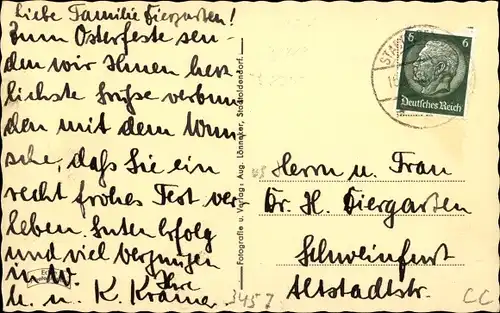 Liebe Familie Tiergarten!
Zum Osterfeste sen-
den wir Ihnen herz-
lichste Grüße verbun
den mit dem Wun
sche, daß Sie ein
recht frohes Fest ver
leben. Guten Erfolg
und viel Vergnügen
in W. Ihre
H. u. K. Krämer
Fotografie u. Verlag: Aug. Lönneker, Stadtoldendorf.
6 6
Deutsches Reich
STADT
Herrn u. Frau
Dr. H. Tiergarten
Schweinfurt
Altstadtstr.
3457
CC